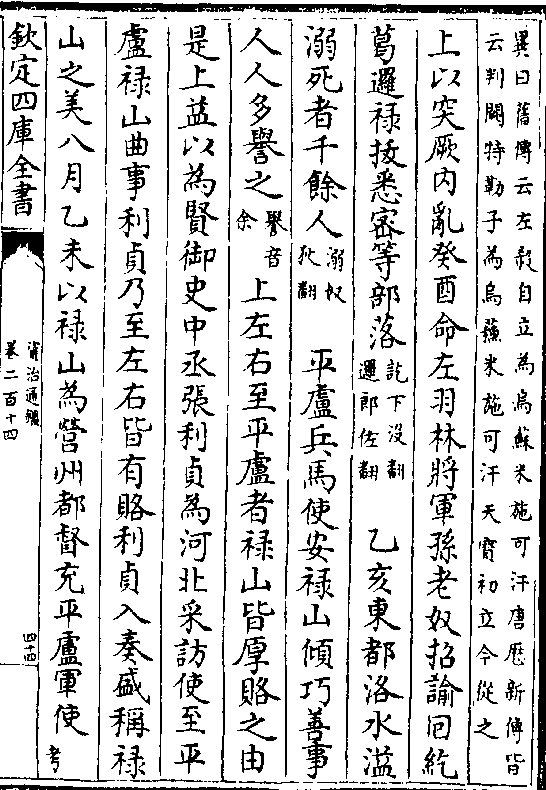 異曰舊傳云左殺自立為烏蘇米施可汗唐厯新傳皆
云判闕特勒子為烏蘇米施可汗天寳初立今從之
上以突厥内亂癸酉命左羽林將軍孫老奴招諭回紇
葛邏禄拔悉密等部落紇下没翻邏郎佐翻 乙亥東都洛水溢
溺死者千餘人溺奴狄翻 平盧兵馬使安禄山傾巧善事
人人多譽之譽音余 上左右至平盧者禄山皆厚賂之由
是上益以為賢御史中丞張利貞為河北采訪使至平
盧禄山曲事利貞乃至左右皆有賂利貞入奏盛稱禄
山之美八月乙未以禄山為營州都督充平盧軍使考
欽定四庫全書
資治通鑑
卷二百十四
四十四